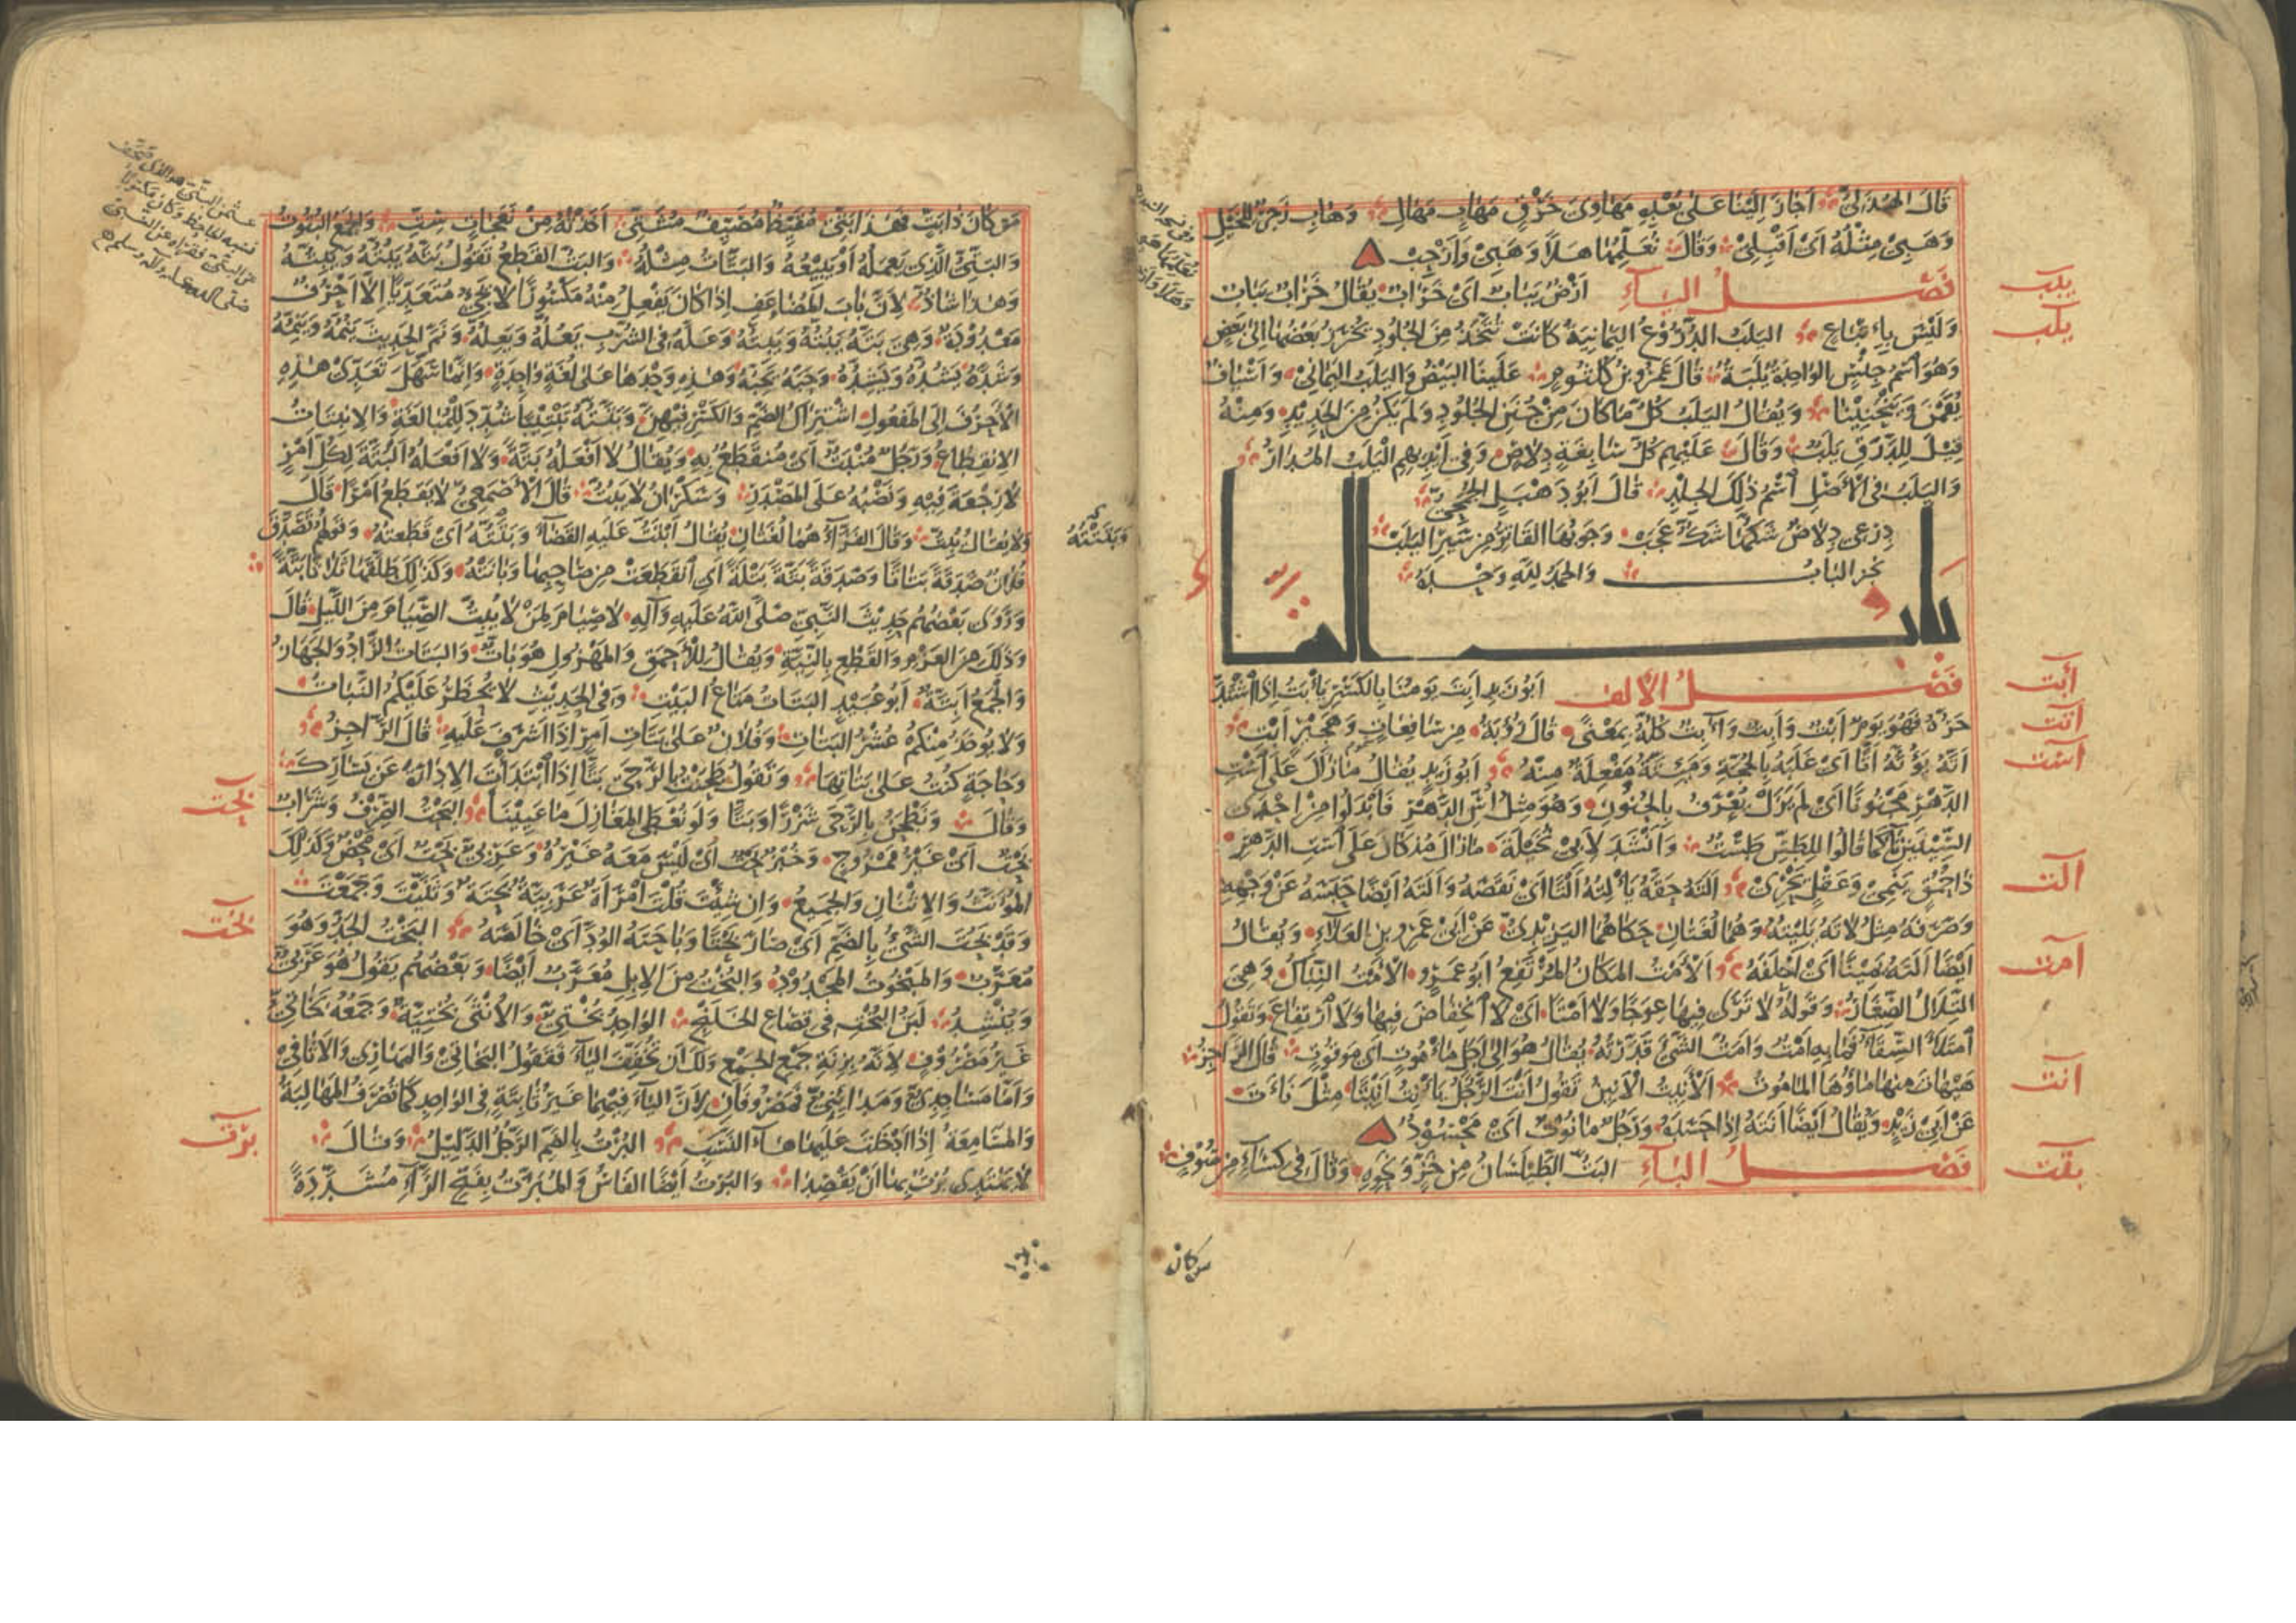 قَالَ الهُذَلِيُّ أَجَازَ إِلَيْنَا عَلَى بُعْدِهِ مَهَاوِىَ خَرْقٍ مَهَابٍ مَهَالِ وَهَابِ زَجْرٌ لِلْخَيْلِ
وَهَبِيْ مِثْلُهُ أَيْ أَقْبِلِيْ وَقَالَ نُعَلِّمُهَا هَلَا وَهَبِيْ وَأَرْحِبْ
فَصْلُ اليَاءِ أَرْضٌ يَبَابٌ أَيْ خَرَابٌ يُقَالُ خَرَابٌ يَبَابٌ
وَلَيْسَ بِاِتْبَاعٍ اليَلَبُ الدُّرُوْعُ اليَمَانِيَةُ كَانَتْ تُتَّخَذُ مِنَ الجُلُودِ تُخْرَزُ بَعْضُهَا إِلَى بَعْضٍ
وَهُوَ اسْمُ جِنْسٍ الوَاحِدَةُ يَلَبَةٌ قَالَ عَمْرُو بْنُ كُلْثُومٍ عَلَيْنَا البَيْضُ وَاليَلَبُ اليَمَانِيْ وَأَسْيَافٌ
يُقَمْنَ وَيَنْحَنِيْنَا وَيُقَالُ اليَلَبُ كُلُّ مَا كَانَ مِنْ جُنَنِ الجُلُودِ وَلَمْ يَكُنْ مِنَ الحَدِيْدِ وَمِنْهُ
قِيْلَ لِلدَّرَقِ يَلَبٌ وَقَالَ عَلَيْهِمْ كُلُّ سَابِغَةٍ دِلَاصٍ وَفِى أَيْدِيْهِمِ اليَلَبُ المُدَارُ
وَاليَلَبُ فِى الأَصْلِ اسْمُ ذٰلِكَ الجِلْدِ قَالَ أَبُو دَهْبَلٍ الجُمَحِيُّ
دِرْعِى دِلَاصٌ شَكُّهَا شَكٌّ عَجَبْ وَجَوْبُهَا القَاتِرُ مِنْ سَيْرِ اليَلَبْ
نَجَزَ البَابُ وَالحَمْدُ لِلّٰهِ وَحْدَهُ
بَابُ التَّاءِ
فَصْلُ الأَلِفِ أَبُو زَيْدٍ أَبِتَ يَومُنَا بِالكَسْرِ يَأْبَتُ إِذَا اشْتَدَّ
حَرُّهُ فَهُوَ يَومٌ أَبْتٌ وَأَبِتٌ وَآبِتٌ كُلُّهُ بِمَعْنًى قَالَ رُؤْبَةُ مِنْ سَافِعَاتٍ وَهَجِيْرٍ أَبْتِ
أَتَّهُ يَؤُتُّهُ أَتًّا أَيْ غَلَبَهُ بِالحُجَّةِ وَمَئِتَّةٌ مَفْعِلَةٌ مِنْهُ أَبُو زَيْدٍ يُقَالُ مَا زَالَ عَلَى اسْتِ
الدَّهْرِ مَجْنُونًا أَيْ لَمْ يَزَلْ يُعْرَفُ بِالجُنُونِ وَهُوَ مِثْلُ أُسِّ الدَّهْرِ فَأَبْدَلُوا مِنْ إِحْدَى
السِّيْنَيْنِ تَاءً كَمَا قَالُوا لِلطَّسِّ طَسْتٌ وَأَنْشَدَ لِأَبِيْ نُخَيْلَةَ مَا زَالَ مُذْ كَانَ عَلَى اسْتِ الدَّهْرِ
ذَا حُمُقٍ يَنْمِيْ وَعَقْلٍ يَحْرِيْ أَلَتَهُ حَقَّهُ يَأْلِتُهُ أَلْتًا أَيْ نَقَصَهُ وَأَلَتَهُ أَيْضًا حَبَسَهُ عَنْ وَجْهِهِ
وَصَرَفَهُ مِثْلُ لَاتَهُ يَلِيْتُهُ وَهُمَا لُغَتَانِ حَكَاهُمَا اليَزِيْدِيُّ عَنْ أَبِيْ عَمْرِو بْنِ العَلَاءِ وَيُقَالُ
أَيْضًا أَلَتَهُ يَمِيْنًا أَيْ أَحْلَفَهُ الأَمْتُ المَكَانُ المُرْتَفِعُ أَبُو عَمْرٍو الأَمْتُ النِّبَاكُ وَهِيَ
التِّلَالُ الصِّغَارُ وَقَولُهُ لَا تَرَى فِيهَا عِوَجًا وَلَا أَمْتًا أَيْ لَا انْخِفَاضَ فِيهَا وَلَا ارْتِفَاعَ وَتَقُولُ
امْتَلَأَ السِّقَاءُ فَمَا بِهِ أَمْتٌ وَأَمَتُّ الشَّيْءَ قَدَّرْتُهُ يُقَالُ هُوَ إِلَى أَجَلٍ مَأْمُوتٍ أَيْ مَوْقُوتٍ قَالَ الرَّاجِزُ
هَيْهَاتَ مِنْهَا مَاؤُهَا المَأْمُوتُ الأَنِيْتُ الأَنِيْنُ تَقُولُ أَنَتَ الرَّجُلُ يَأْنِتُ أَنِيْتًا مِثْلُ نَأَتَ
عَنْ أَبِيْ زَيْدٍ وَيُقَالُ أَيْضًا أَنَتَهُ إِذَا حَسَدَهُ وَرَجُلٌ مَأْنُوتٌ أَيْ مَحْسُودٌ
فَصْلُ البَاءِ البَتُّ الطَّيْلَسَانُ مِنْ خَزٍّ وَنَحْوِهِ وَقَالَ فِى كِسَاءٍ مِنْ صُوفٍ
يبب
يلب
أبت
أتت
أست
ألت
أمت
أنت
بتت
من كان
مَنْ كَانَ ذَا بَتٍّ فَهَذَا بَتِّيْ مُقَيِّظٌ مُصَيِّفٌ مُشَتِّيْ أَخَذْتُهُ مِنْ نَعَجَاتٍ سِتِّ وَالجَمْعُ البُتُوتُ
وَالبَتِّيُّ الَّذِى يَعْمَلُهُ أَوْ يَبِيْعُهُ وَالبَتَّاتُ مِثْلُهُ وَالبَتُّ القَطْعُ تَقُولُ بَتَّهُ يَبُتُّهُ وَيَبِتُّهُ
وَهٰذَا شَاذٌّ لِأَنَّ بَابَ المُضَاعَفِ إِذَا كَانَ يَفْعِلُ مِنْهُ مَكْسُورًا لَا يَجِيْءُ مُتَعَدِّيًا إِلَّا أَحْرُفٌ
مَعْدُوْدَةٌ وَهِيَ بَتَّهُ يَبُتُّهُ وَيَبِتُّهُ وَعَلَّهُ فِى الشُّرْبِ يَعُلُّهُ وَيَعِلُّهُ وَنَمَّ الحَدِيْثَ يَنُمُّهُ وَيَنِمُّهُ
وَشَدَّهُ يَشُدُّهُ وَيَشِدُّهُ وَحَبَّهُ يَحِبُّهُ وَهٰذِهِ وَحْدَهَا عَلَى لُغَةٍ وَاحِدَةٍ وَإِنَّمَا سَهَّلَ تَعَدِّىَ هٰذِهِ
الأَحْرُفِ إِلَى المَفْعُولِ اشْتِرَاكُ الضَّمِّ وَالكَسْرِ فِيْهِنَّ وَبَتَّتَهُ تَبْتِيْتًا شُدِّدَ لِلْمُبَالَغَةِ وَالِانْبِتَاتُ
الِانْقِطَاعُ وَرَجُلٌ مُنْبَتٌّ أَيْ مُنْقَطَعٌ بِهِ وَيُقَالُ لَا أَفْعَلُهُ بَتَّةً وَلَا أَفْعَلُهُ البَتَّةَ لِكُلِّ أَمْرٍ
لَا رَجْعَةَ فِيْهِ وَنَصْبُهُ عَلَى المَصْدَرِ وَسَكْرَانُ لَا يَبُتُّ قَالَ الأَصْمَعِيُّ لَا يَقْطَعُ أَمْرًا قَالَ
وَلَا يُقَالُ يُبِتُّ وَقَالَ الفَرَّاءُ هُمَا لُغَتَانِ يُقَالُ أَبْتَتُّ عَلَيْهِ القَضَاءَ وَبَتَتُّهُ أَيْ قَطَعْتُهُ وَقَولُهُمْ تَصَدَّقَ
فُلَانٌ صَدَقَةً بَتَاتًا وَصَدَقَةً بَتَّةً بَتْلَةً أَيِ انْقَطَعَتْ مِنْ صَاحِبِهَا وَبَانَتْهُ وَكَذٰلِكَ طَلَّقَهَا ثَلَاثًا بَتَّةً
وَرَوَى بَعْضُهُمْ حَدِيْثَ النَّبِيِّ صَلَّى اللّٰهُ عَلَيْهِ وَآلِهِ لَا صِيَامَ لِمَنْ لَا يُبِتُّ الصِّيَامَ مِنَ اللَّيْلِ قَالَ
وَذٰلِكَ مِنَ العَزْمِ وَالقَطْعِ بِالنِّيَّةِ وَيُقَالُ لِلْأَحْمَقِ وَالمَهْزُولِ هُوَ بَاتٌّ وَالبَتَاتُ الزَّادُ وَالجَهَازُ
وَالجَمْعُ أَبِتَّةٌ أَبُو عُبَيْدٍ البَتَاتُ مَتَاعُ البَيْتِ وَفِى الحَدِيْثِ لَا يُحْظَرُ عَلَيْكُمُ النَّبَاتُ
وَلَا يُوخَذُ مِنْكُمْ عُشْرُ البَتَاتِ وَفُلَانٌ عَلَى بَتَاتِ أَمْرٍ إِذَا أَشْرَفَ عَلَيْهِ قَالَ الرَّاجِزُ
وَحَاجَةٍ كُنْتُ عَلَى بَتَاتِهَا وَتَقُولُ طَحَنْتُ بِالرَّحَى بَتًّا إِذَا ابْتَدَأْتَ الإِدَارَةَ عَنْ يَسَارِكَ
وَقَالَ وَنَطْحَنُ بِالرَّحَى شَزْرًا وَبَتًّا وَلَو نُعْطَى المَغَازِلَ مَا عَيِيْنَا البَحْتُ الصِّرْفُ وَشَرَابٌ
بَحْتٌ أَيْ غَيْرُ مَمْزُوجٍ وَخُبْزٌ بَحْتٌ أَيْ لَيْسَ مَعَهُ غَيْرُهُ وَعَرَبِيٌّ بَحْتٌ أَيْ مَحْضٌ وَكَذٰلِكَ
المُؤَنَّثُ وَالِاثْنَانِ وَالجَمِيْعُ وَإِنْ شِئْتَ قُلْتَ امْرَأَةٌ عَرَبِيَّةٌ بَحْتَةٌ وَثَنَّيْتَ وَجَمَعْتَ
وَقَدْ بَحُتَ الشَّيْءُ بِالضَّمِّ أَيْ صَارَ بَحْتًا وَبَاحَتَهُ الوُدَّ أَيْ خَالَصَهُ البَخْتُ الجَدُّ وَهُوَ
مُعَرَّبٌ وَالمَبْخُوتُ المَجْدُوْدُ وَالبُخْتُ مِنَ الإِبِلِ مُعَرَّبٌ أَيْضًا وَبَعْضُهُمْ يَقُولُ هُوَ عَرَبِيٌّ
وَيُنْشِدُ لَبَنُ البُخْتِ فِى قِصَاعِ الخَلَنْجِ الوَاحِدُ بُخْتِيٌّ وَالأُنْثَى بُخْتِيَّةٌ وَجَمْعُهُ بَخَاتِيُّ
غَيْرُ مَصْرُوْفٍ لِأَنَّهُ بِزِنَةِ جَمْعِ الجَمْعِ وَلَكَ أَنْ تُخَفِّفَ اليَاءَ فَتَقُولُ البَخَاتِيْ وَالمَهَارِيْ وَالأَثَافِيْ
وَأَمَّا مَسَاجِدِيٌّ وَمَدَائِنِيٌّ فَمَصْرُوفَانِ لِأَنَّ اليَاءَ فِيْهِمَا غَيْرُ ثَابِتَةٍ فِى الوَاحِدِ كَمَا تُصْرَفُ المَهَالِبَةُ
وَالمَسَامِعَةُ إِذَا أَدْخَلْتَ عَلَيْهَا هَاءَ النَّسَبِ البُرْتُ بِالضَّمِّ الرَّجُلُ الدَّلِيْلُ وَقَالَ
لَا يَهْتَدِى بُرْتٌ بِهَا أَنْ يَقْصِدَا وَالبُرْتُ أَيْضًا الفَاسُ وَالمُبَرَّتُ بِفَتْحِ الرَّاءِ مُشَدَّدَةً
وَبَتَّتْتُهُ
بحت
بخت
برت
عثمن البتّي هو الذى صحّف
عن البتّي فقراه عن النبيّ
صلى الله عليه وآله وسلم